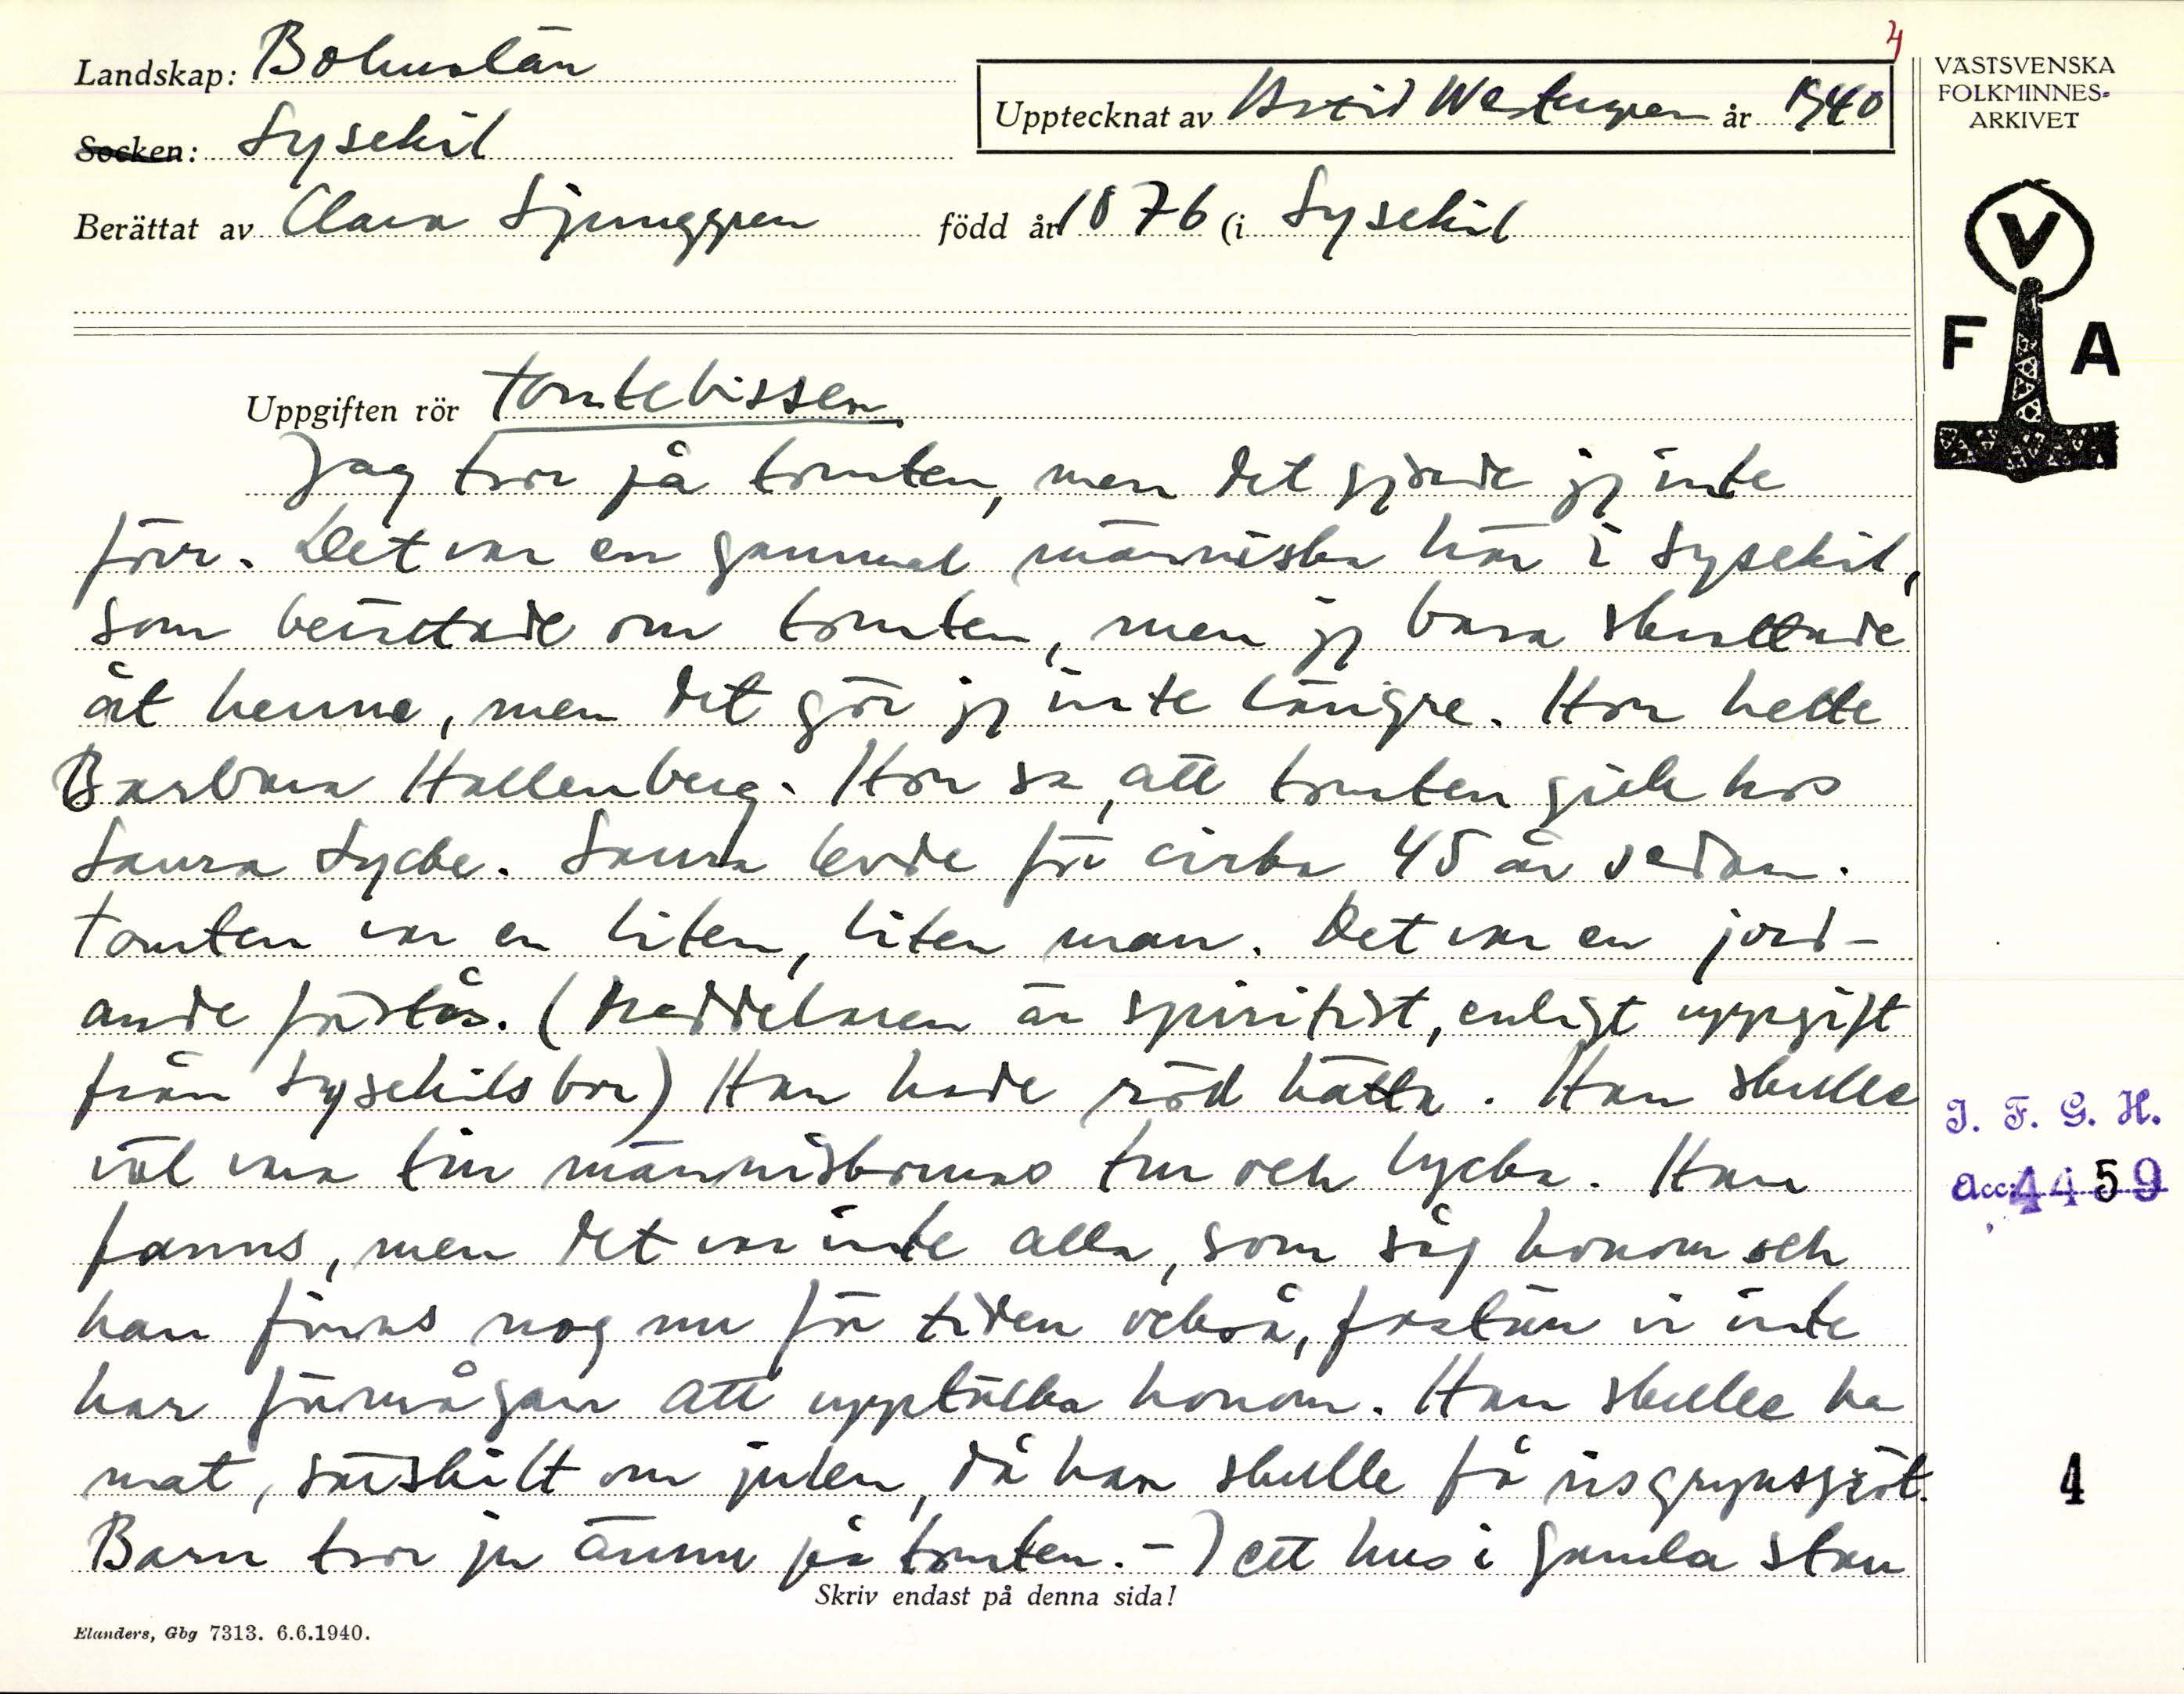 4
Landskap: Bohuslän
Upptecknat av Astrid Westergren år 1940
VÄSTSVENSKA
FOLKMINNES-
ARKIVET
Socken: Lysekil
Berättat av Clara Ljunggren född år 1876 (i Lysekil
V
F A
Uppgiften rör tomtebissen
Jag tror på tomten, men det gjorde jg inte
förr. Det var en gammal människa här i Lysekil,
som berättade om tomten, men jg bara skrattade
åt henne, men det gör jg inte längre. Hon hette
Barbara Hallenberg. Hon sa, att tomten gick hos
Laura Lycke. Laura levde för cirka 45 år sedan.
Tomten var en liten, liten man. Det var en jord-
ande förstås. (Meddelaren är spiritist, enligt uppgift
från Lysekilsbor) Han hade röd hätta. Han skulle
väl vara för människornas tur och lycka. Han
fanns, men det var inte alla, som såg honom och
han finns nog nu för tiden också, fastän vi inte
har förmågan att upptäcka honom. Han skulle ha
mat, särskilt om julen, då han skulle få risgrynsgröt.
Barn tror ju ännu på tomten. - I ett hus i gamla stan
I. F. G. H.
Acc: 4459
4
Skriv endast på denna sida!
Elanders, Gbg 7313. 6.6.1940.